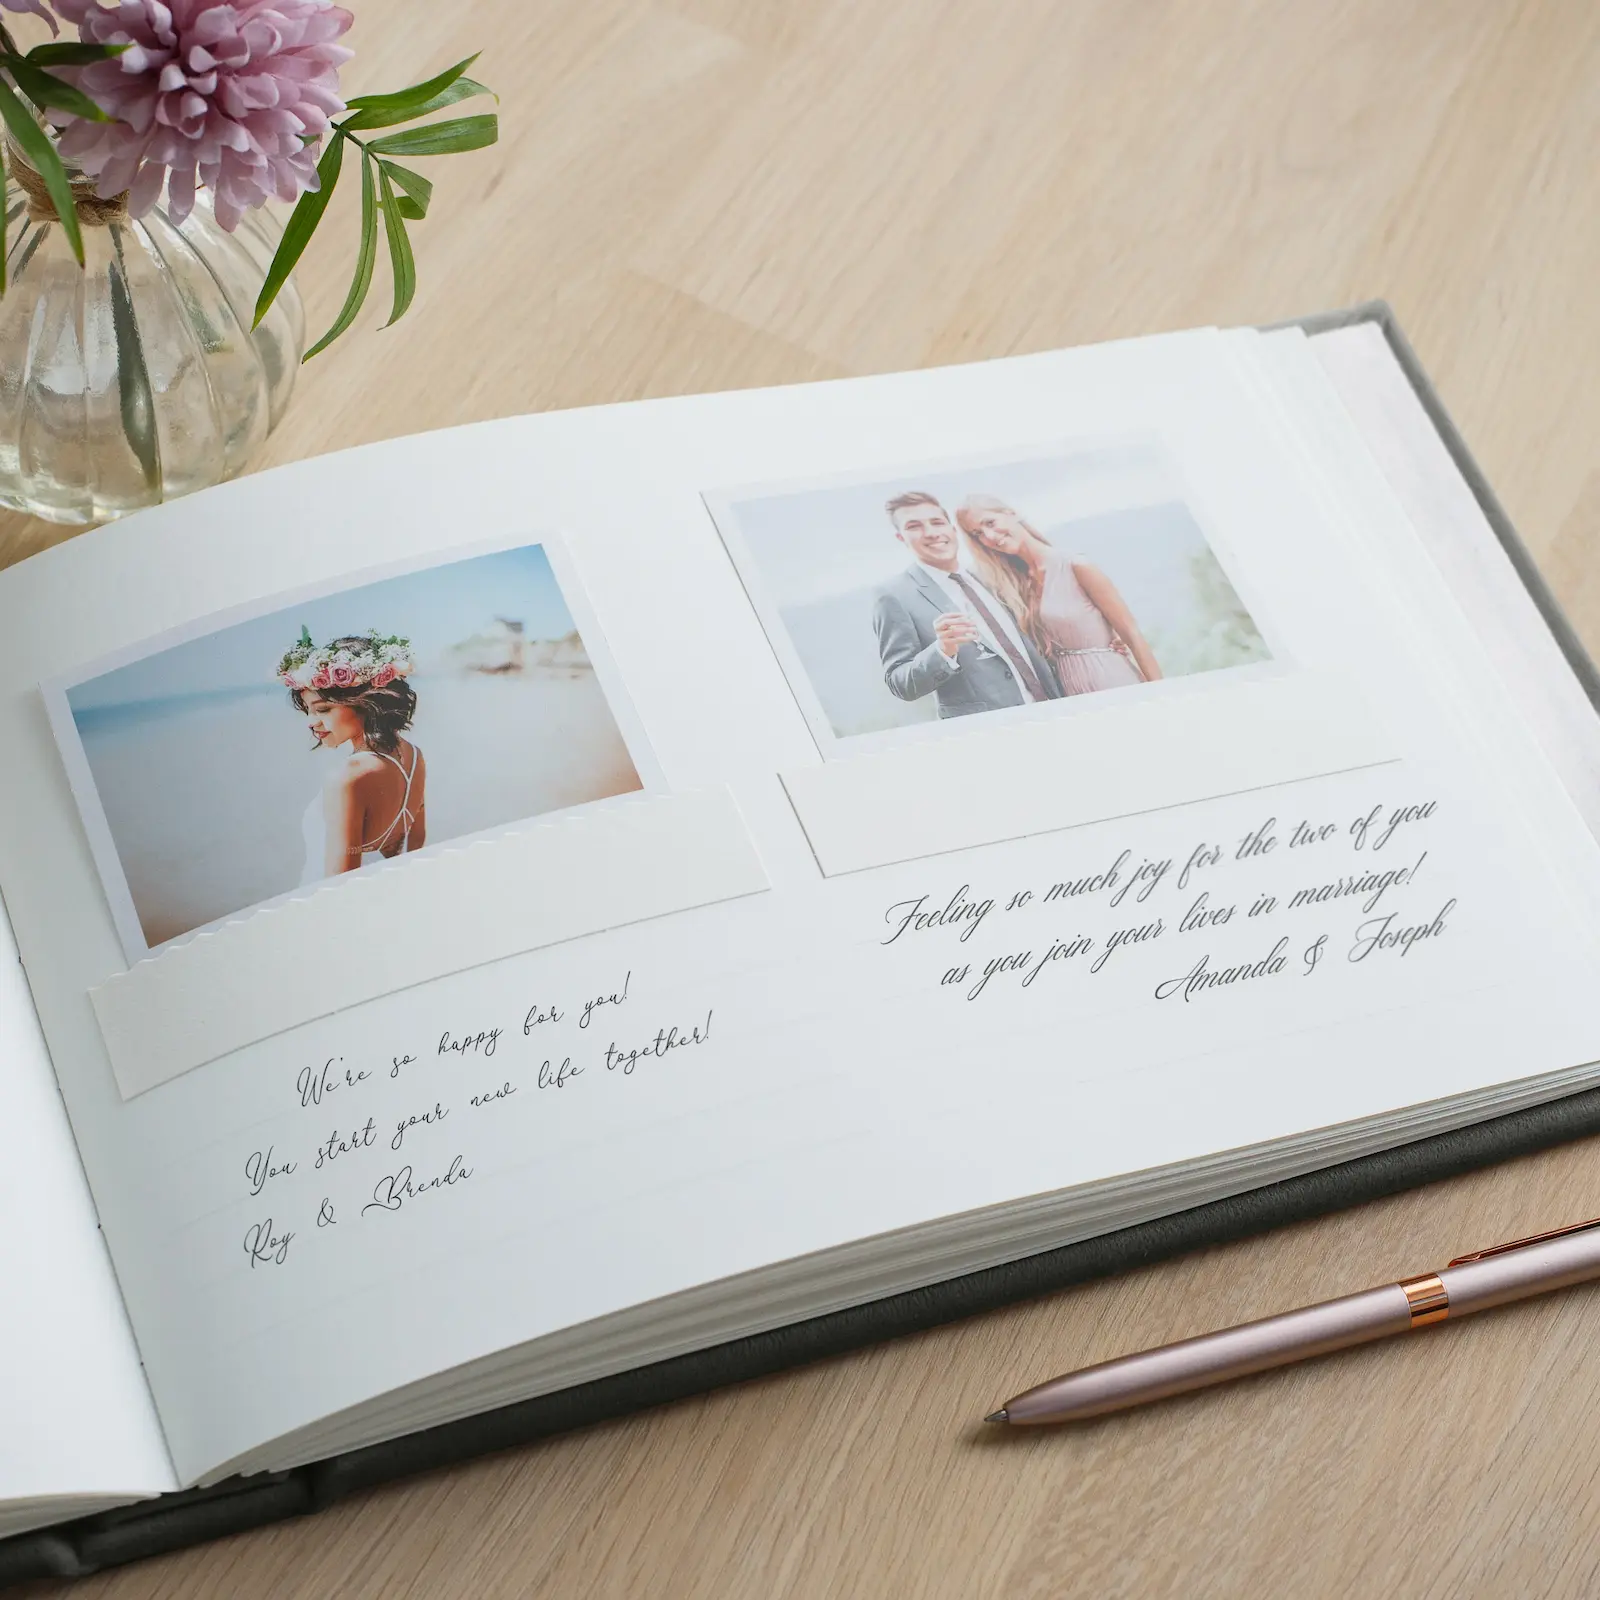 We're so happy for you!
You start your new life together!
Roy & Brenda
Feeling so much joy for the two of you
as you join your lives in marriage!
Amanda & Joseph